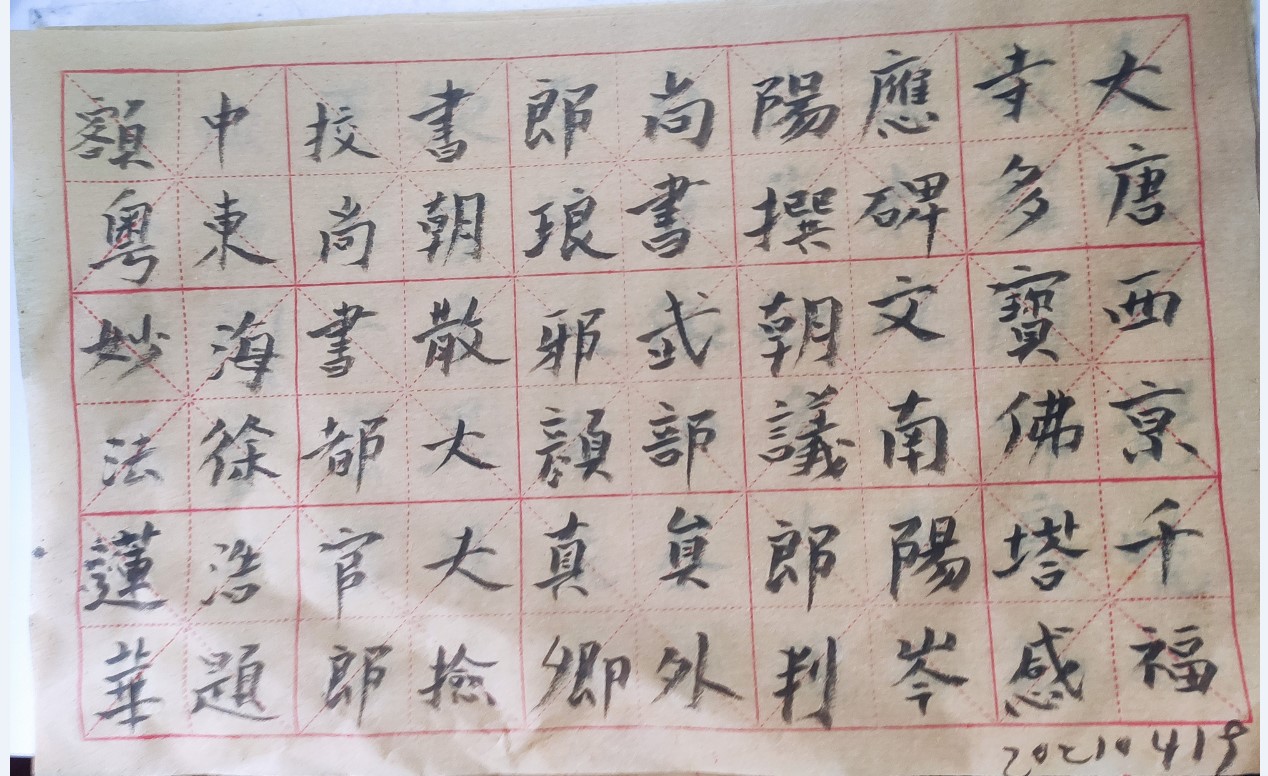 大唐西京千福
寺多寶佛塔感
應碑文南陽岑
陽撰朝議郎判
尚書武部員外
郎琅邪顏真卿
書朝散大夫撿
挍尚書都官郎
中東海徐浩題
額粵妙法蓮華
20210419